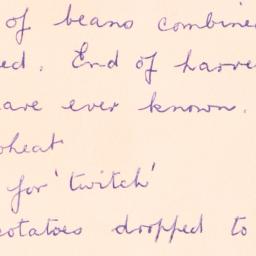 of beans combine
ed. End of harve
are ever known.
heat
for 'twitch'
otatoes dropped to